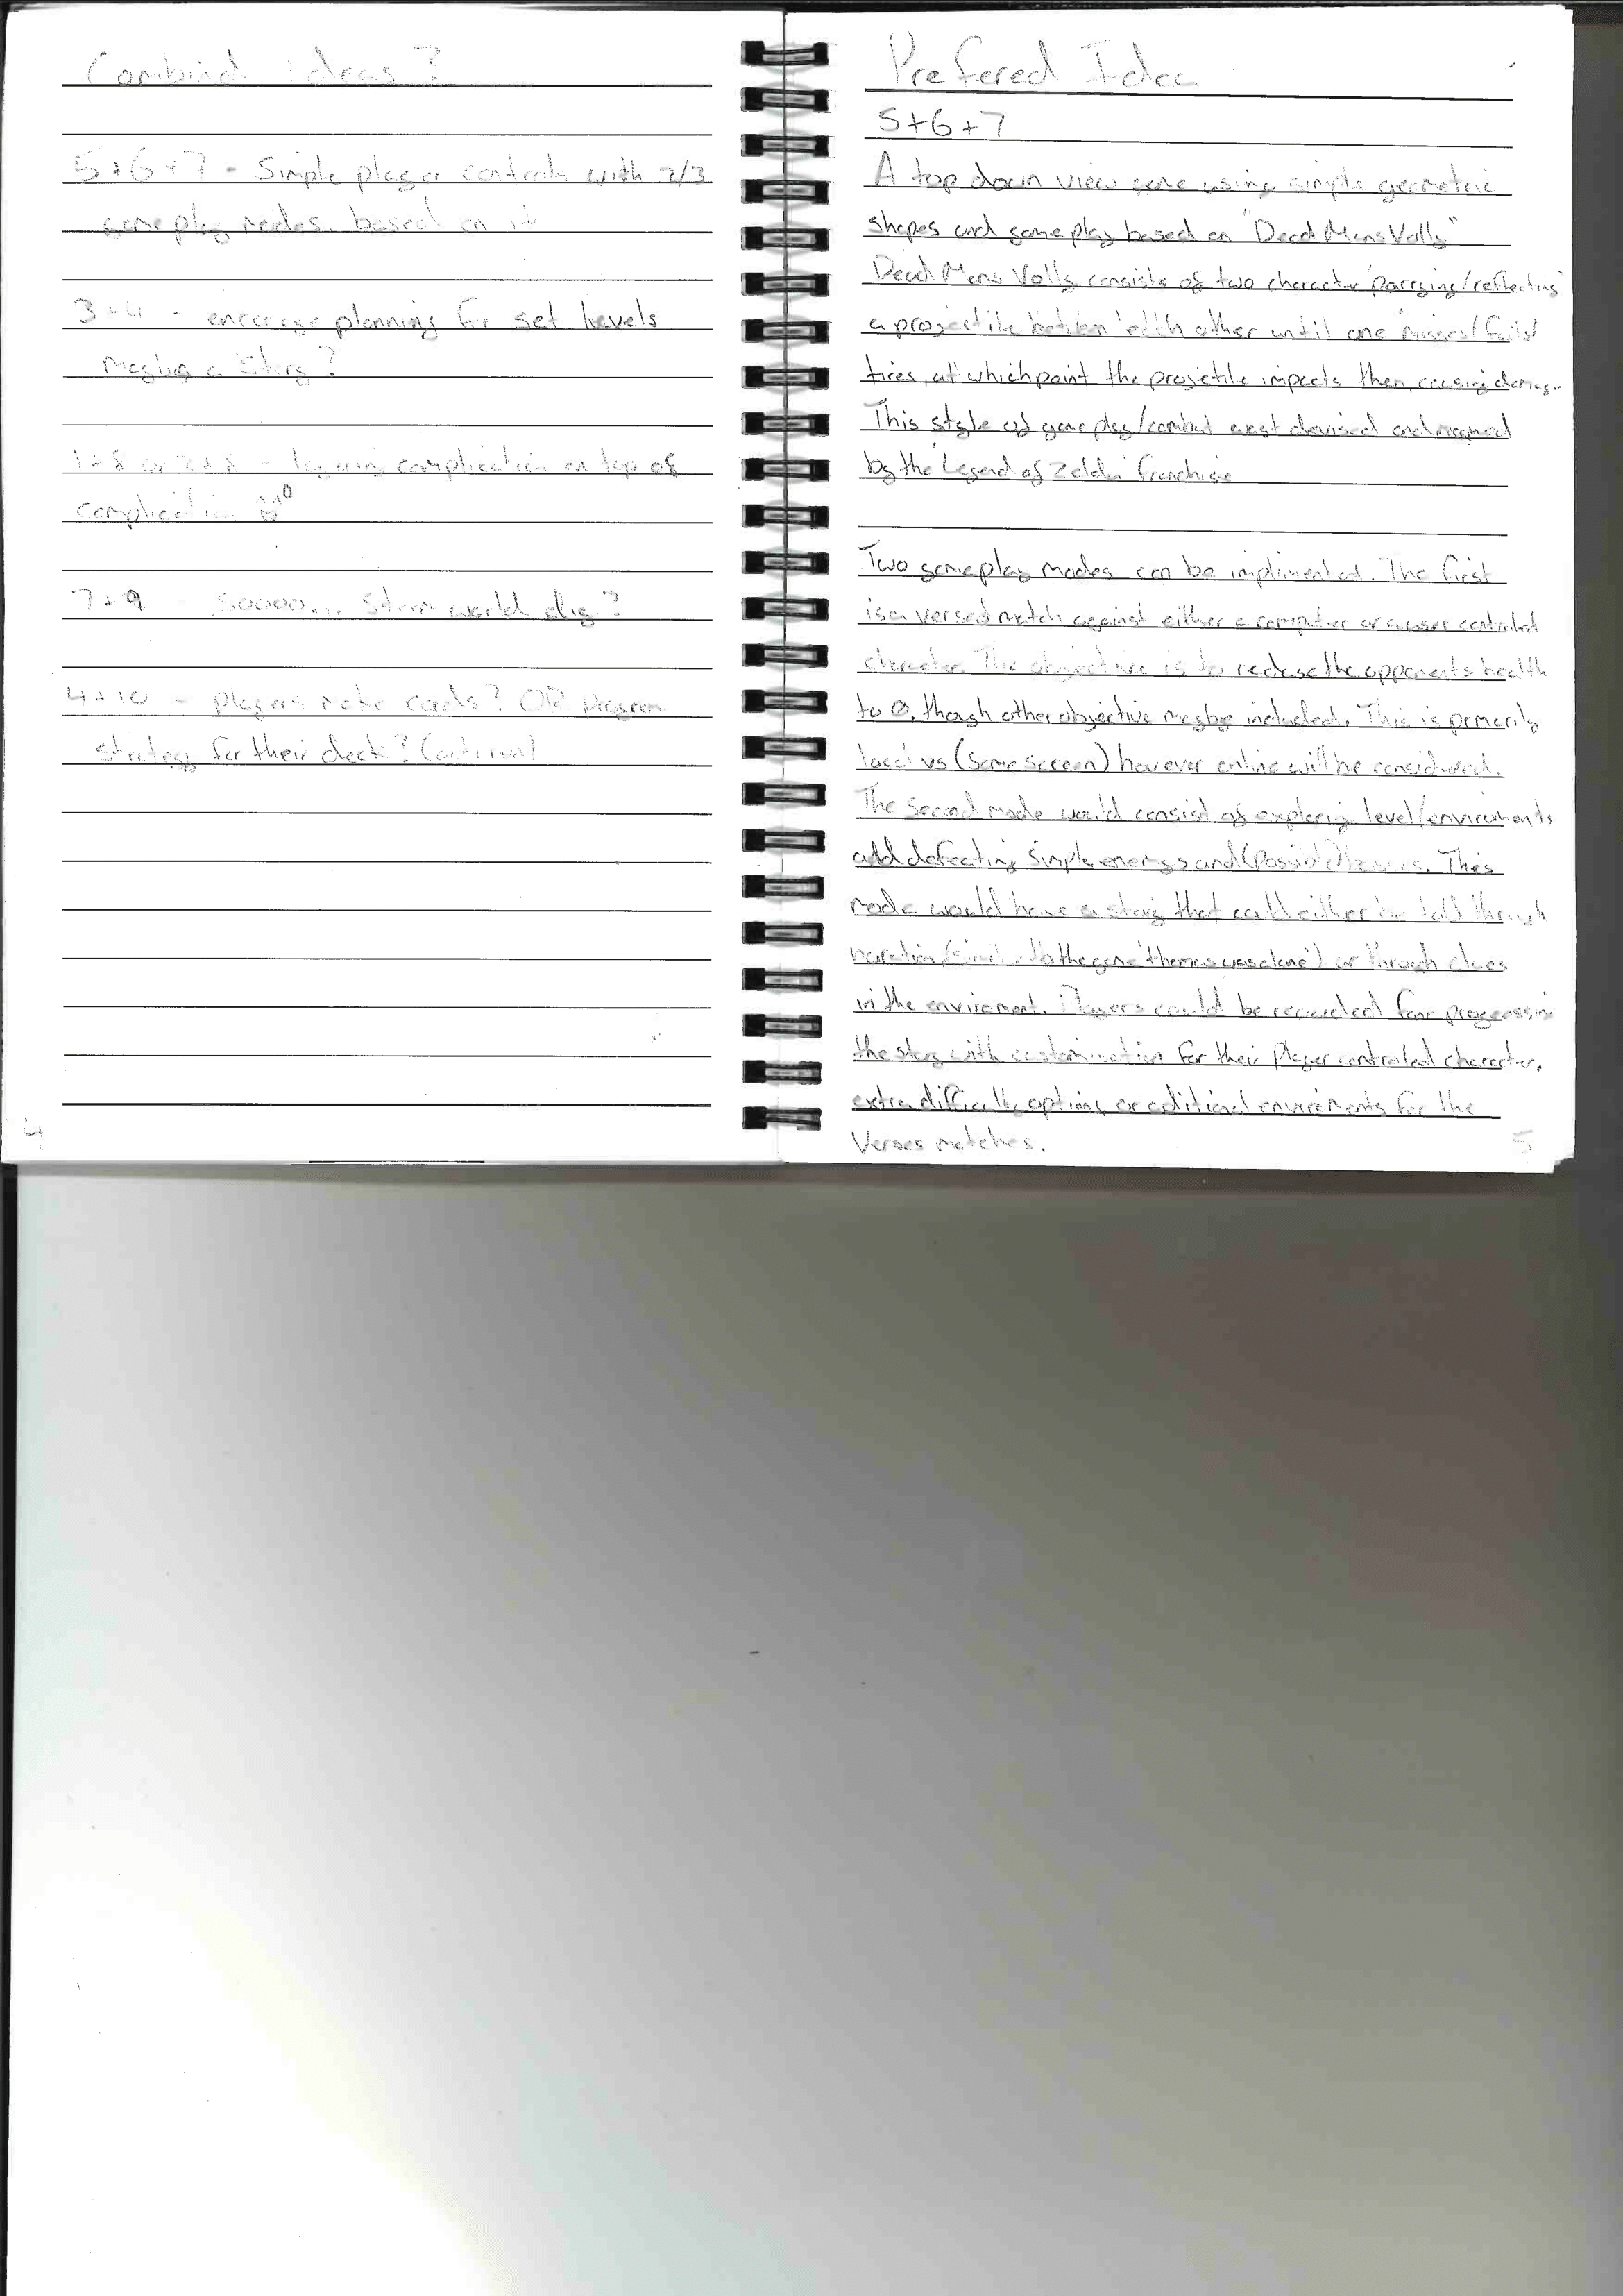 Combind ideas?
5+6+7 - Simple player controls with 2/3
gameplay modes. based on it
3+4 - encorage planning for set levels
Maybe a story?
1+8 or 2+8 - layering complication on top of
complication
7+9 - soooo... Steam world dig?
4+10 - players make cards? OR program
strategy for their deck? (automon)
4
Prefered Idea
5+6+7
A top down view game using simple geometric
shapes and gameplay based on "Dead Mans Volly"
Dead Mans Volly consists of two character parrying/reflecting
a projectile betwen each other until one misses/fails/
tires, at which point the projectile impacts them, causing damage.
This style of gameplay/combat was devised and
by the 'Legend of Zelda' franchise
Two gameplay modes can be implimented. The first
is a versed match against either a computer or a user controled
character. The objective is to reduse the opponents health
to 0, though other objective maybe included. This is primarily
local vs (same screen) however online will be considured.
The second mode would consist of exploring level/enviroments
and defeating simple enemys and (possible) bosses. This
mode would have a story that could either be told through
naration (similar to the game 'thomas was alone') or through clues
in the enviroment. Players could be rewarded for progressing
the story with customisation for their player controled character,
extra difficulty options or aditional enviroments for the
Verses matches.
5